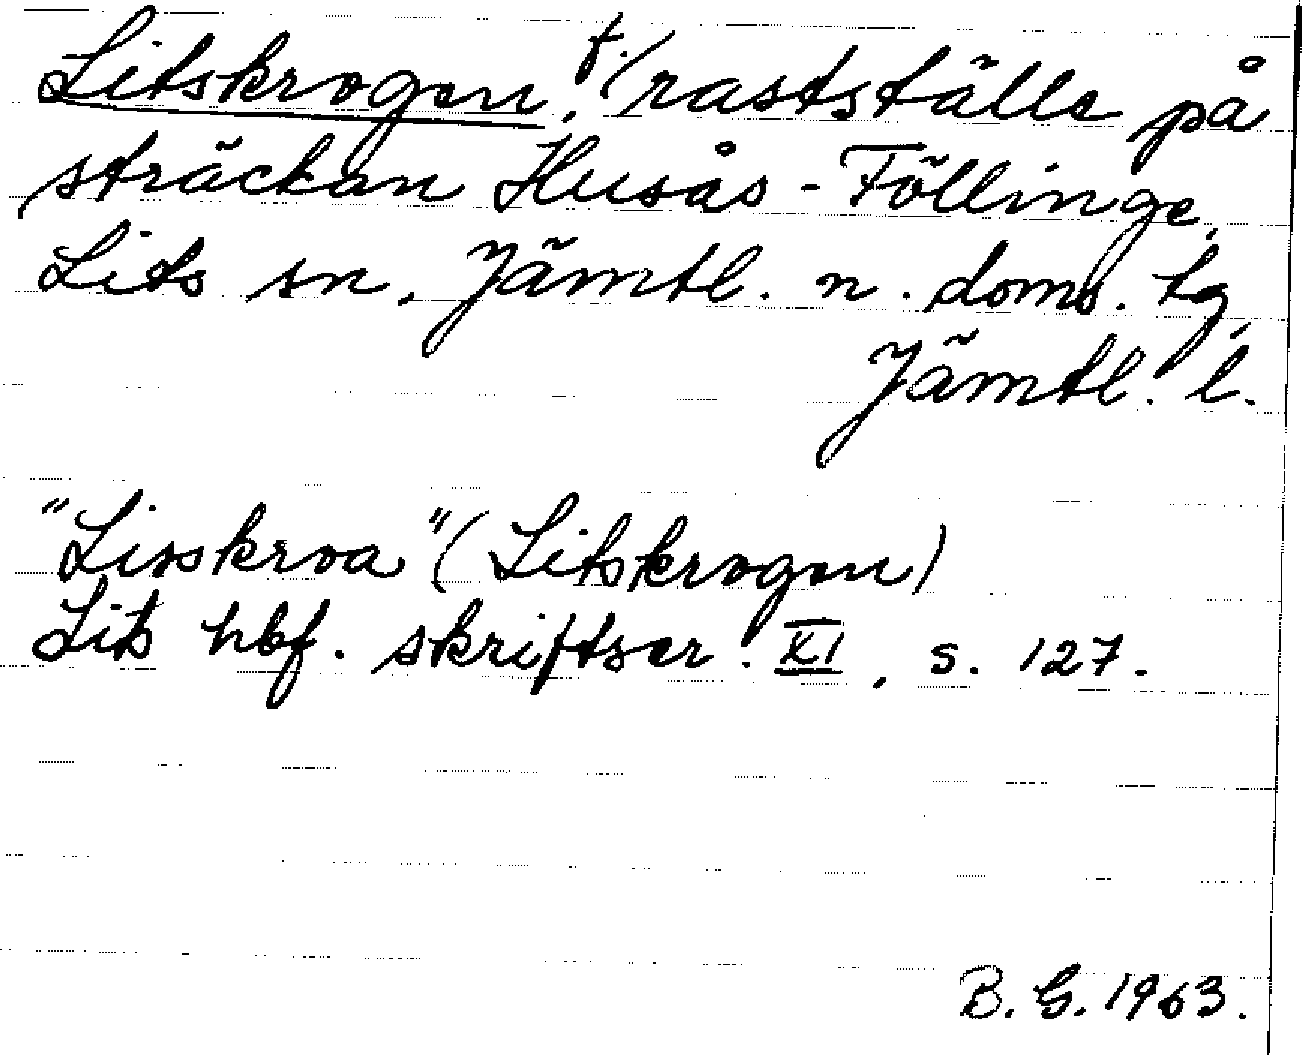 Litskrogen, f./rastställe på
sträckan Husås - Föllinge,
Lits sn, Jämtl. n. doms. tg,
Jämtl. l.
"Lisskroa" (Litskrogen)
Lits hbf. skriftser. XI, s. 127.
B. G. 1963.